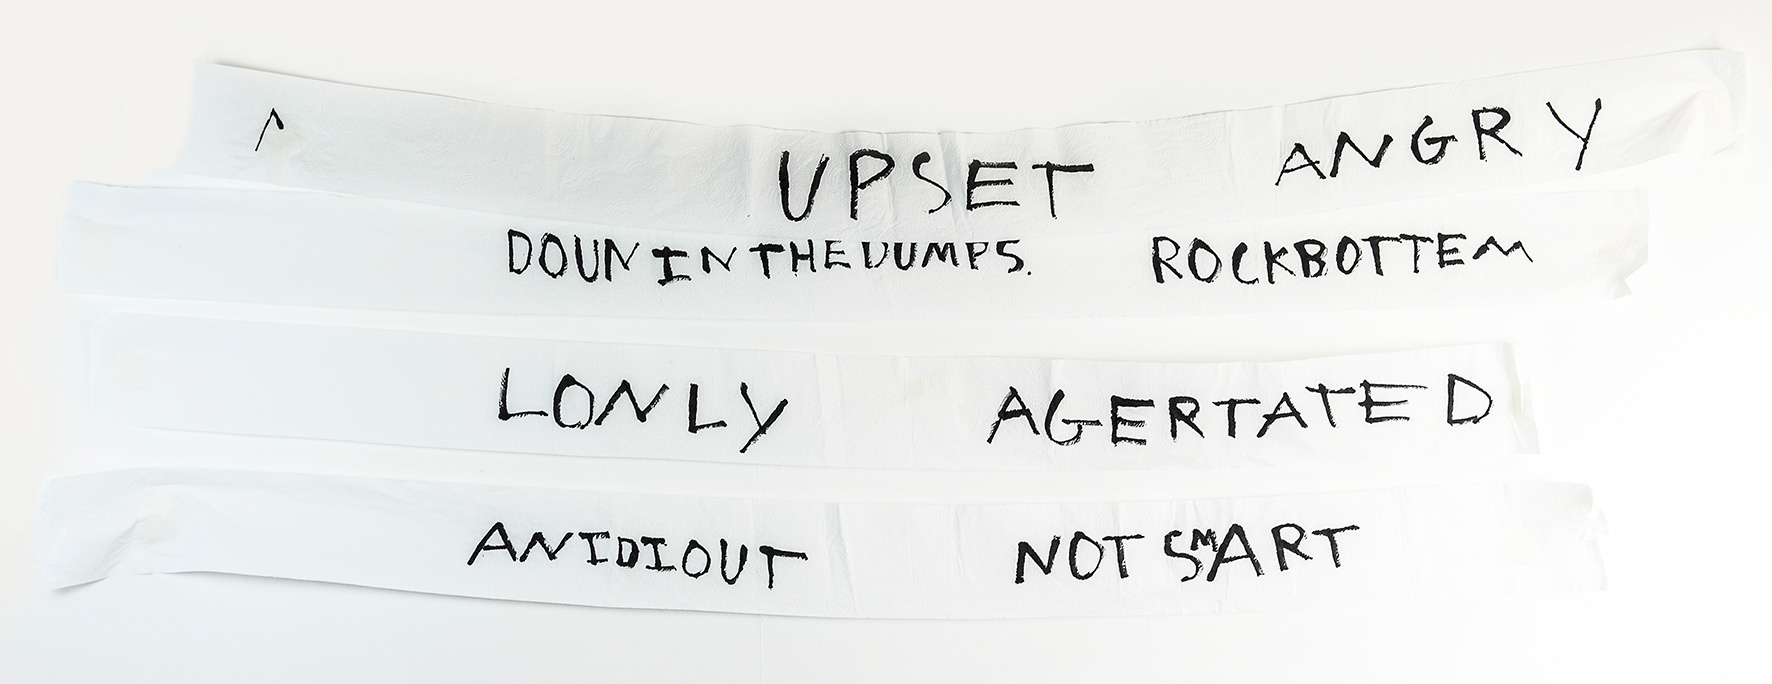 UPSET ANGRY
DOUN IN THE DUMPS. ROCKBOTTEM
LONLY AGERTATED
AN IDIOUT NOT SMART